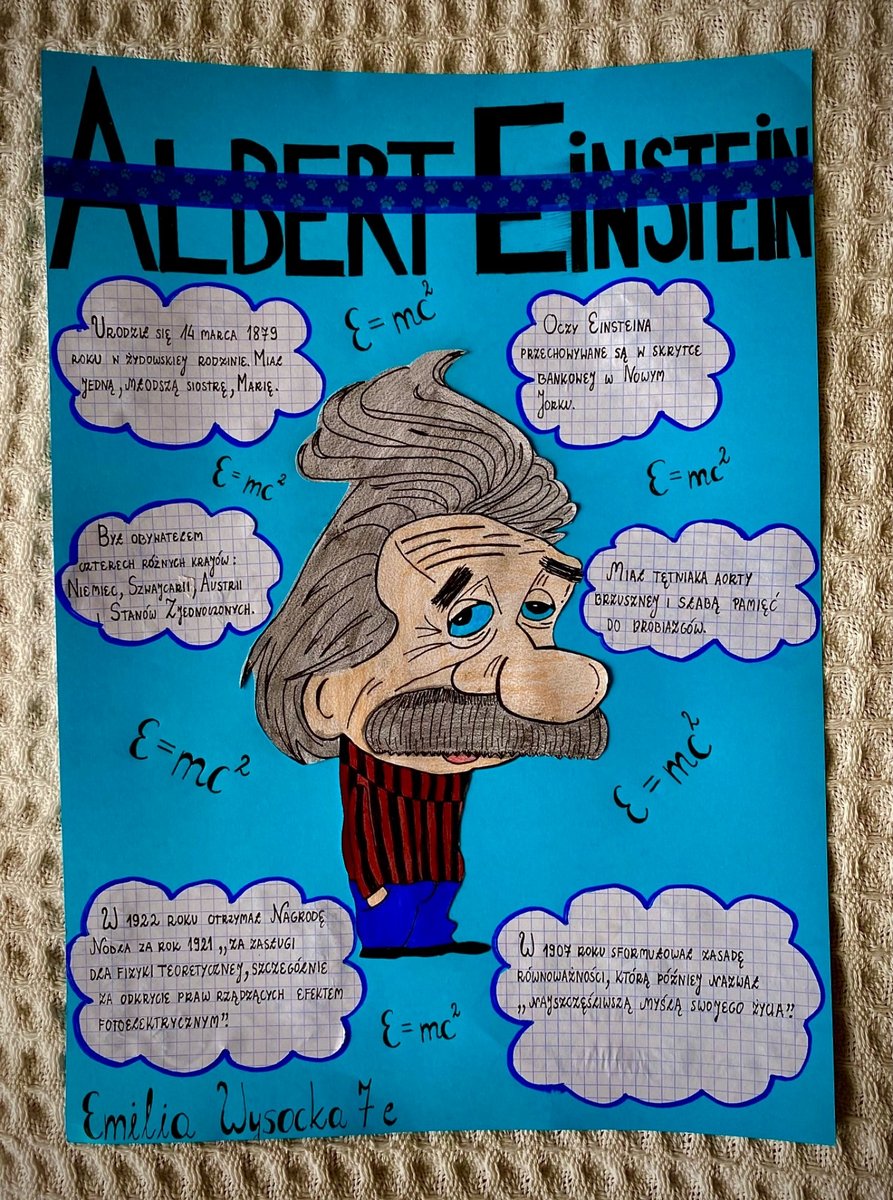 ALBERT EINSTEIN
E=mc²
URODZIŁ SIĘ 14 MARCA 1879
ROKU W ŻYDOWSKIEJ RODZINIE. MIAŁ
JEDNĄ, MŁODSZĄ SIOSTRĘ, MARIĘ.
OCZY EINSTEINA
PRZECHOWYWANE SĄ W SKRYTCE
BANKOWEJ W NOWYM
JORKU.
E=mc²
E=mc²
BYŁ OBYWATELEM
CZTERECH RÓŻNYCH KRAJÓW:
NIEMIEC, SZWAJCARII, AUSTRII
I STANÓW ZJEDNOCZONYCH.
MIAŁ TĘTNIAKA AORTY
BRZUSZNEJ I SŁABĄ PAMIĘĆ
DO DROBIAZGÓW.
E=mc²
E=mc²
W 1922 ROKU OTRZYMAŁ NAGRODĘ
NOBLA ZA ROK 1921 „ZA ZASŁUGI
DLA FIZYKI TEORETYCZNEJ, SZCZEGÓLNIE
ZA ODKRYCIE PRAW RZĄDZĄCYCH EFEKTEM
FOTOELEKTRYCZNYM”.
W 1907 ROKU SFORMUŁOWAŁ ZASADĘ
RÓWNOWAŻNOŚCI, KTÓRĄ PÓŹNIEJ NAZWAŁ
„NAJSZCZĘŚLIWSZĄ MYŚLĄ SWOJEGO ŻYCIA”.
E=mc²
Emilia Wysocka 7e